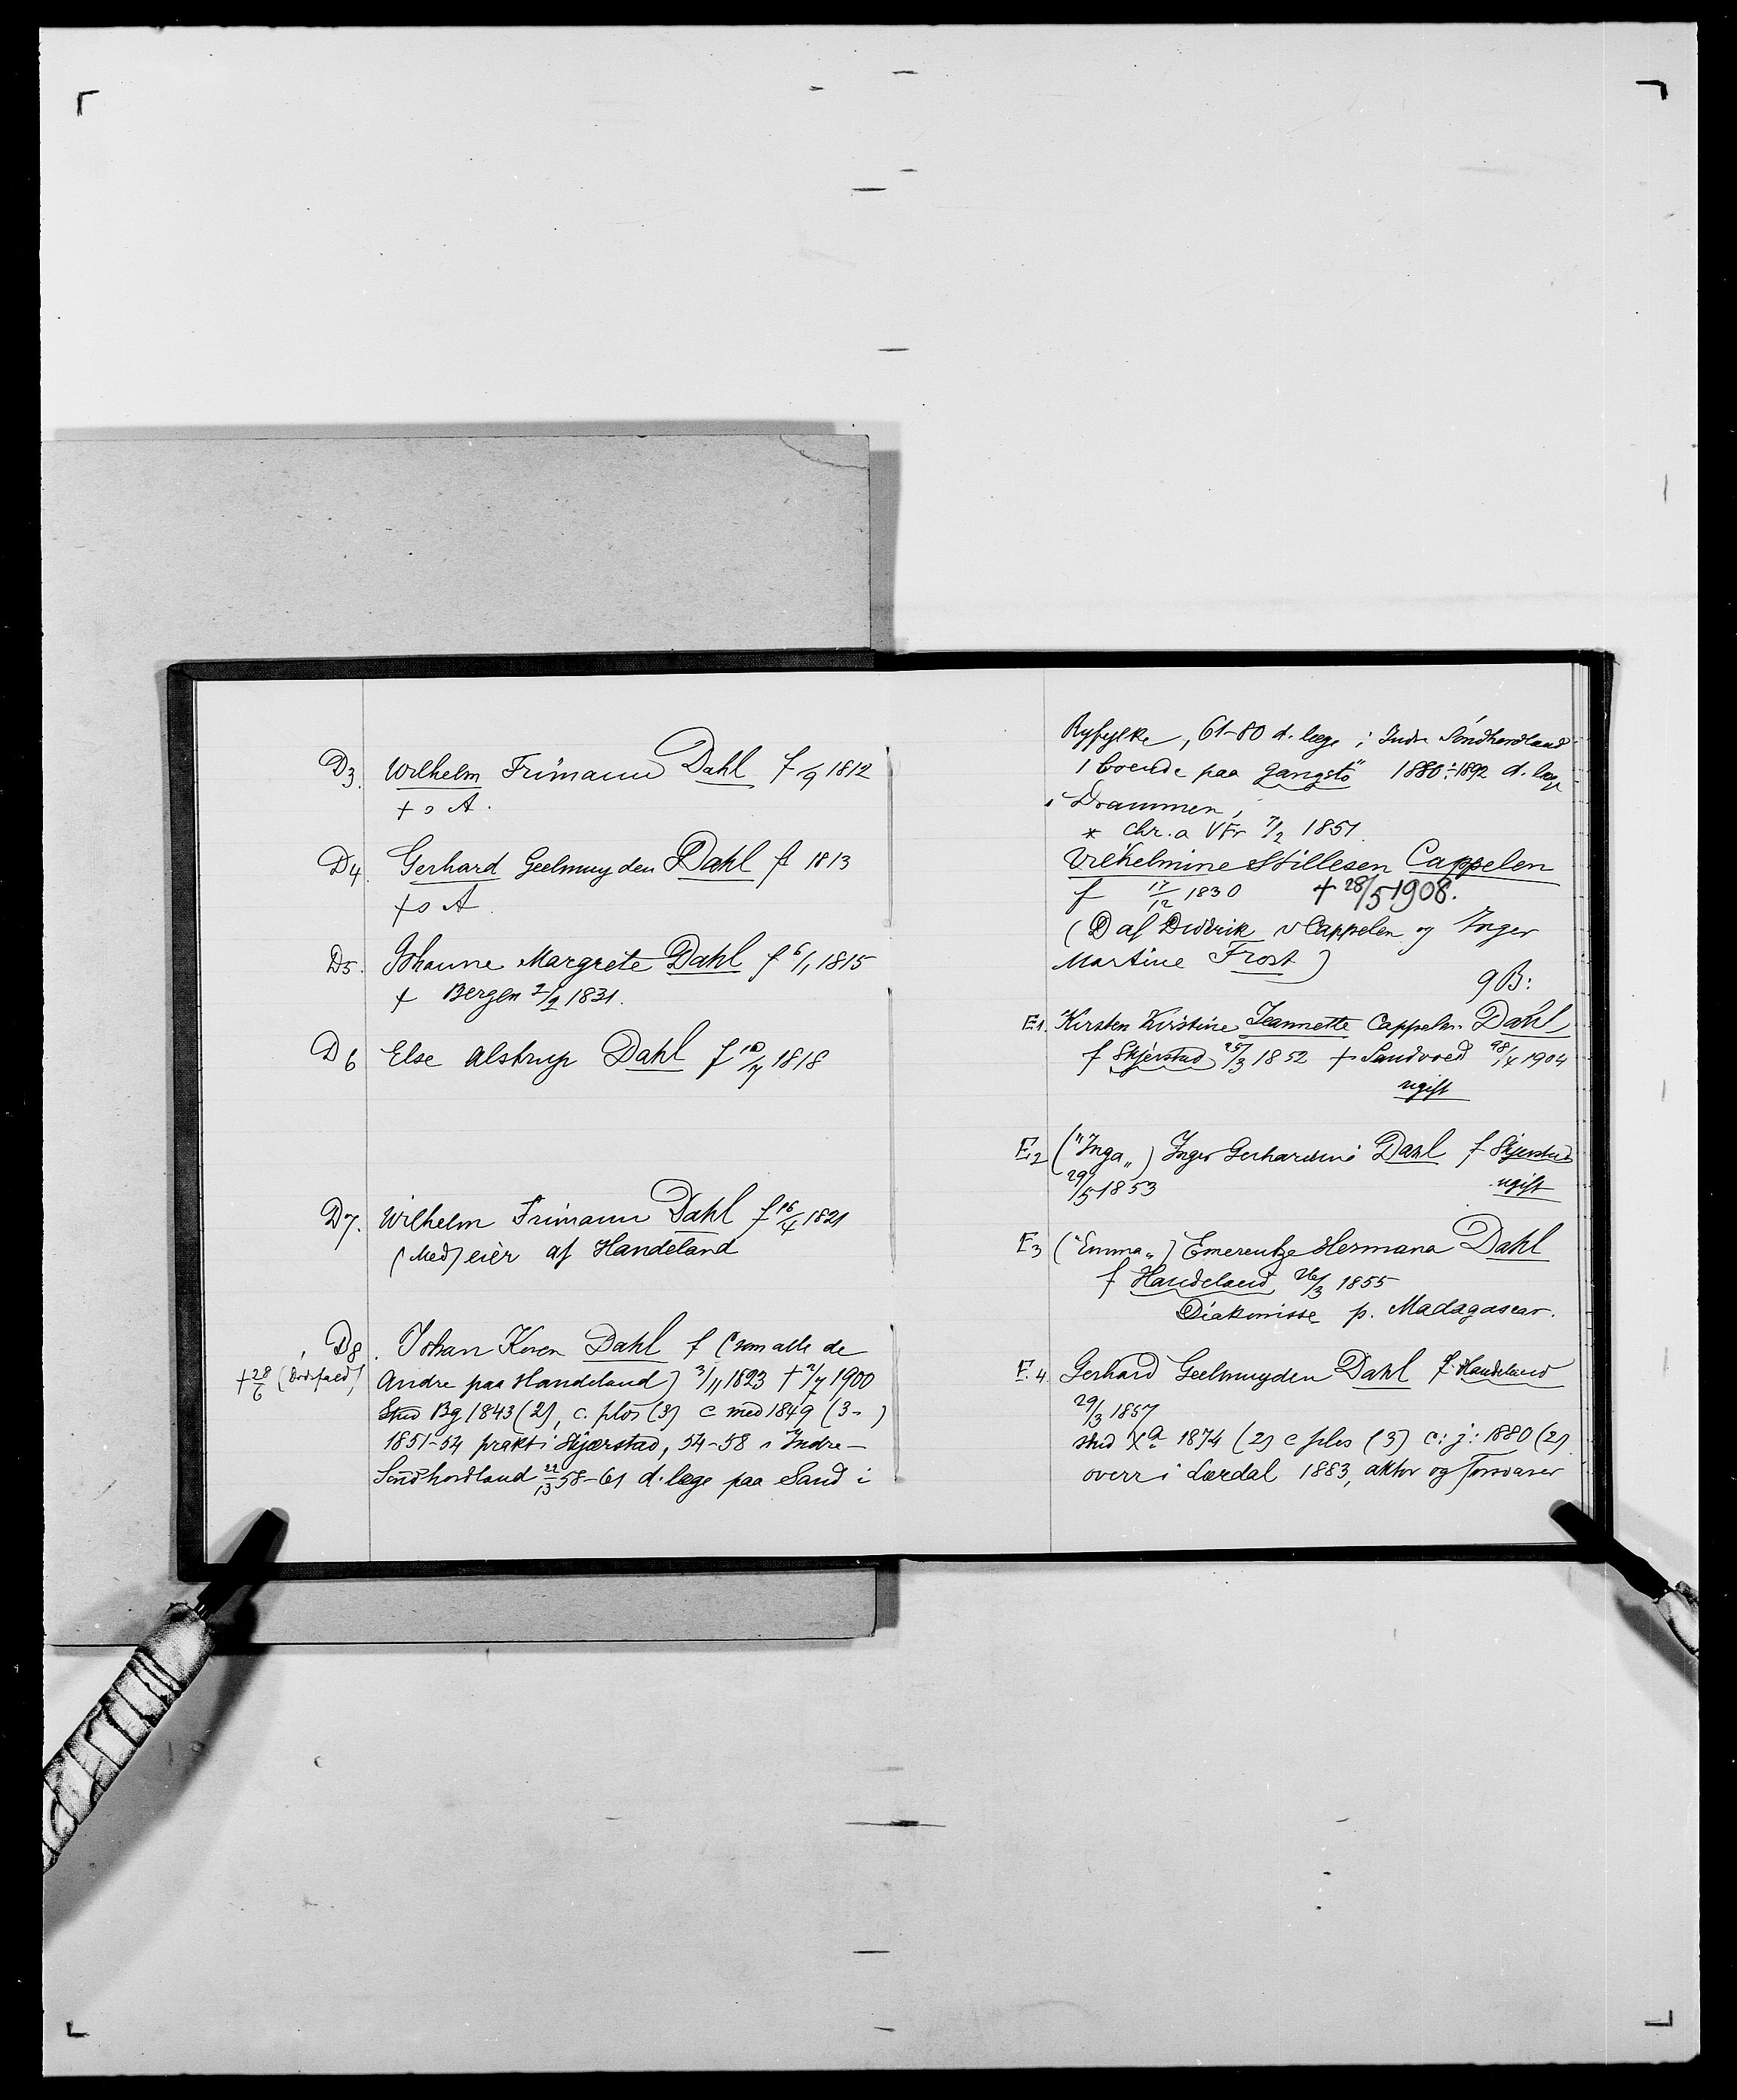 D3. Wilhelm Frimann Dahl f /9 1812
+ s A.
D4. Gerhard Geelmuyden Dahl f 1813
+ s A.
D5. Johanne Margrete Dahl f 6/1 1815
+ Bergen 2/2 1831.
D6 Else Alstrup Dahl f 10/7 1818
D7. Wilhelm Frimann Dahl f 16/4 1821
(Med)eier af Handeland
D8. Johan Koren Dahl f (som alle de
+ 28/6 (Dødsfald)
Andre paa Handeland) 3/11 1823 + 2/7 1900
Stud Bg 1843 (2), c. philos (3) c med 1849 (3-)
1851-54 prakt i Skjærstad, 54-58 i Indre-
Söndhordland 22/13 58-61 d. læge paa Sand i
Ryfylke, 61-80 d. læge i Indre Söndhordland
1 boende paa Gangstö 1880-1892 d. læge
i Drammen,
* Chr.a VFr 7/2 1851
Vilhelmine Stillesen Cappelen
f 17/12 1830 + 28/5 1908.
(D af Didrik v Cappelen og Inger
Martine Frost)
9 B:
E1. Kirsten Kirstine Jeannette Cappelen Dahl
f Skjerstad 25/3 1852 + Sandved 28/4 1904
ugift
E2 ("Inga") Inger Gerhardine Dahl f Skjerstad
29/5 1853 ugift
E3 ("Emma") Emerentze Hermana Dahl
f Handeland 26/3 1855
Diakonisse p. Madagascar.
E.4. Gerhard Geelmuyden Dahl f. Handeland
29/3 1857
stud Xa 1874 (2) c philos (3) c: j: 1880 (2)
overr i Lærdal 1883, aktor og Forsvarer